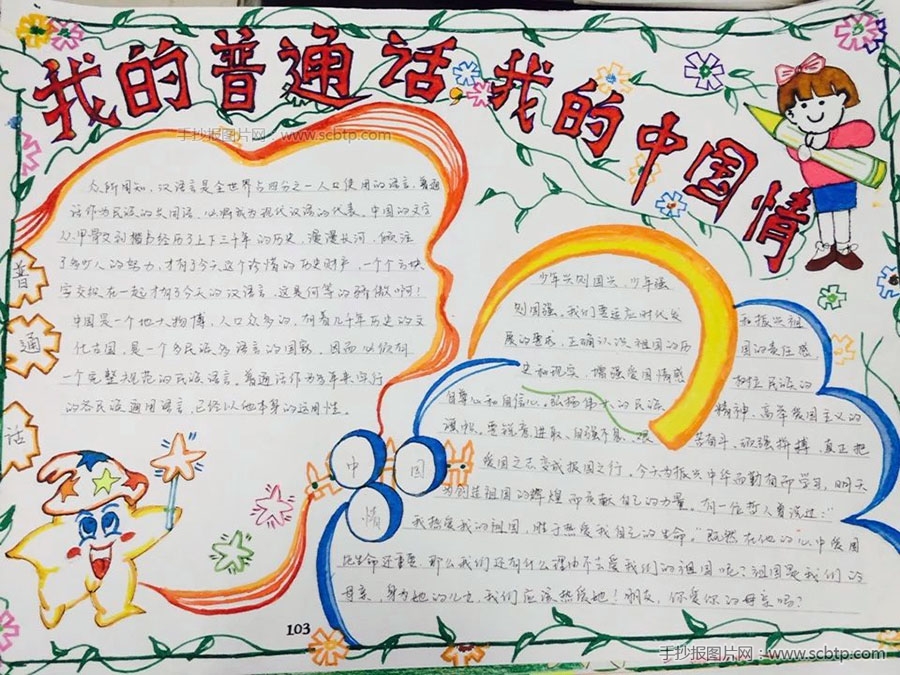 我的普通话 我的中国情
手抄报图片网：www.scbtp.com
众所周知，汉语言是全世界占四分之一人口使用的语言，普通
话作为民族的共同语，必将成为现代汉语的代表。中国的文字
从甲骨文到楷书经历了上下三千年的历史，漫漫长河，倾注
了多少人的努力，才有了今天这个珍惜的历史财产，一个个方块
字交织在一起才有了今天的汉语言，这是何等的骄傲啊！
中国是一个地大物博，人口众多的，有着几千年历史的文
化古国，是一个多民族多语言的国家，因而必须有
一个完整规范的民族语言。普通话作为多年来实行
的各民族通用语言，已经以他本身的运用性。
普
通
话
少年兴则国兴，少年强
则国强。我们要适应时代发
展的要求，正确认识祖国的历
史和现实，增强爱国情感
和振兴祖
国的责任感
树立民族的
自尊心和自信心。弘扬伟大的民族
精神，高举爱国主义的
旗帜。要锐意进取、自强不息、艰
苦奋斗、顽强拼搏，真正把
爱国之志变成报国之行，今天为振兴中华而勤奋学习，明天
为创造祖国的辉煌而贡献自己的力量。有一位哲人曾说过："
我热爱我的祖国，胜于热爱我自己的生命。"既然在他的心中爱国
比生命还重要，那么我们还有什么理由不去爱我们的祖国呢？祖国是我们的
母亲，身为她的儿女，我们应该热爱她！朋友，你爱你的母亲吗？
中
国
情
103
手抄报图片网：www.scbtp.com